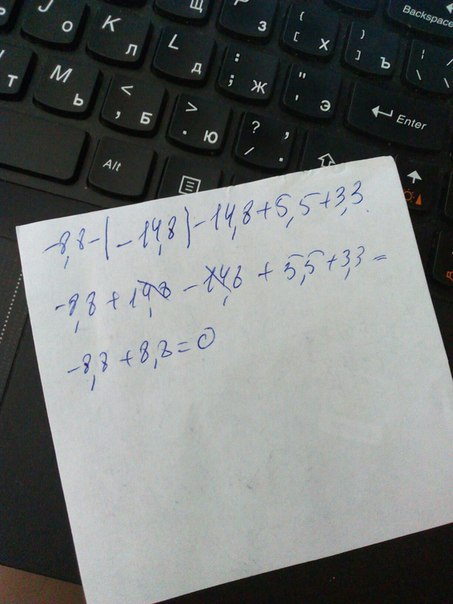 Backspace
J О
K Л
L Д
: ; Ж
" ' Э
{ [ Х
} ] Ъ
P З
M Ь
< , Б
> . Ю
? / . ,
Enter
Alt
-8,8-(-14,8)-14,8+5,5+3,3
-8,8+14,8-14,8+5,5+3,3=
-8,8+8,8=0